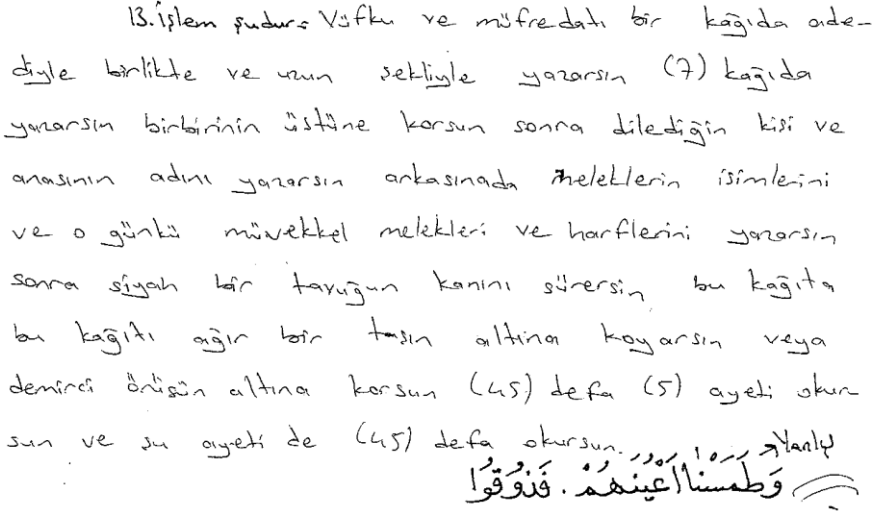 13. işlem şudur: Vüfku ve müfredatı bir kağıda ade-
diyle birlikte ve uzun şekliyle yazarsın (7) kağıda
yazarsın birbirinin üstüne korsun sonra dilediğin kişi ve
anasının adını yazarsın arkasınada meleklerin isimlerini
ve o günkü müvekkel melekleri ve harflerini yazarsın
sonra siyah bir tavuğun kanını sürersin bu kağıta
bu kağıtı ağır bir taşın altına koyarsın veya
demirci örüsün altına korsun (45) defa (5) ayeti okur
sun ve şu ayeti de (45) defa okursun. → Yanlış
وَطَمَسْنَا أَعْيُنَهُمْ . فَذُوقُوا